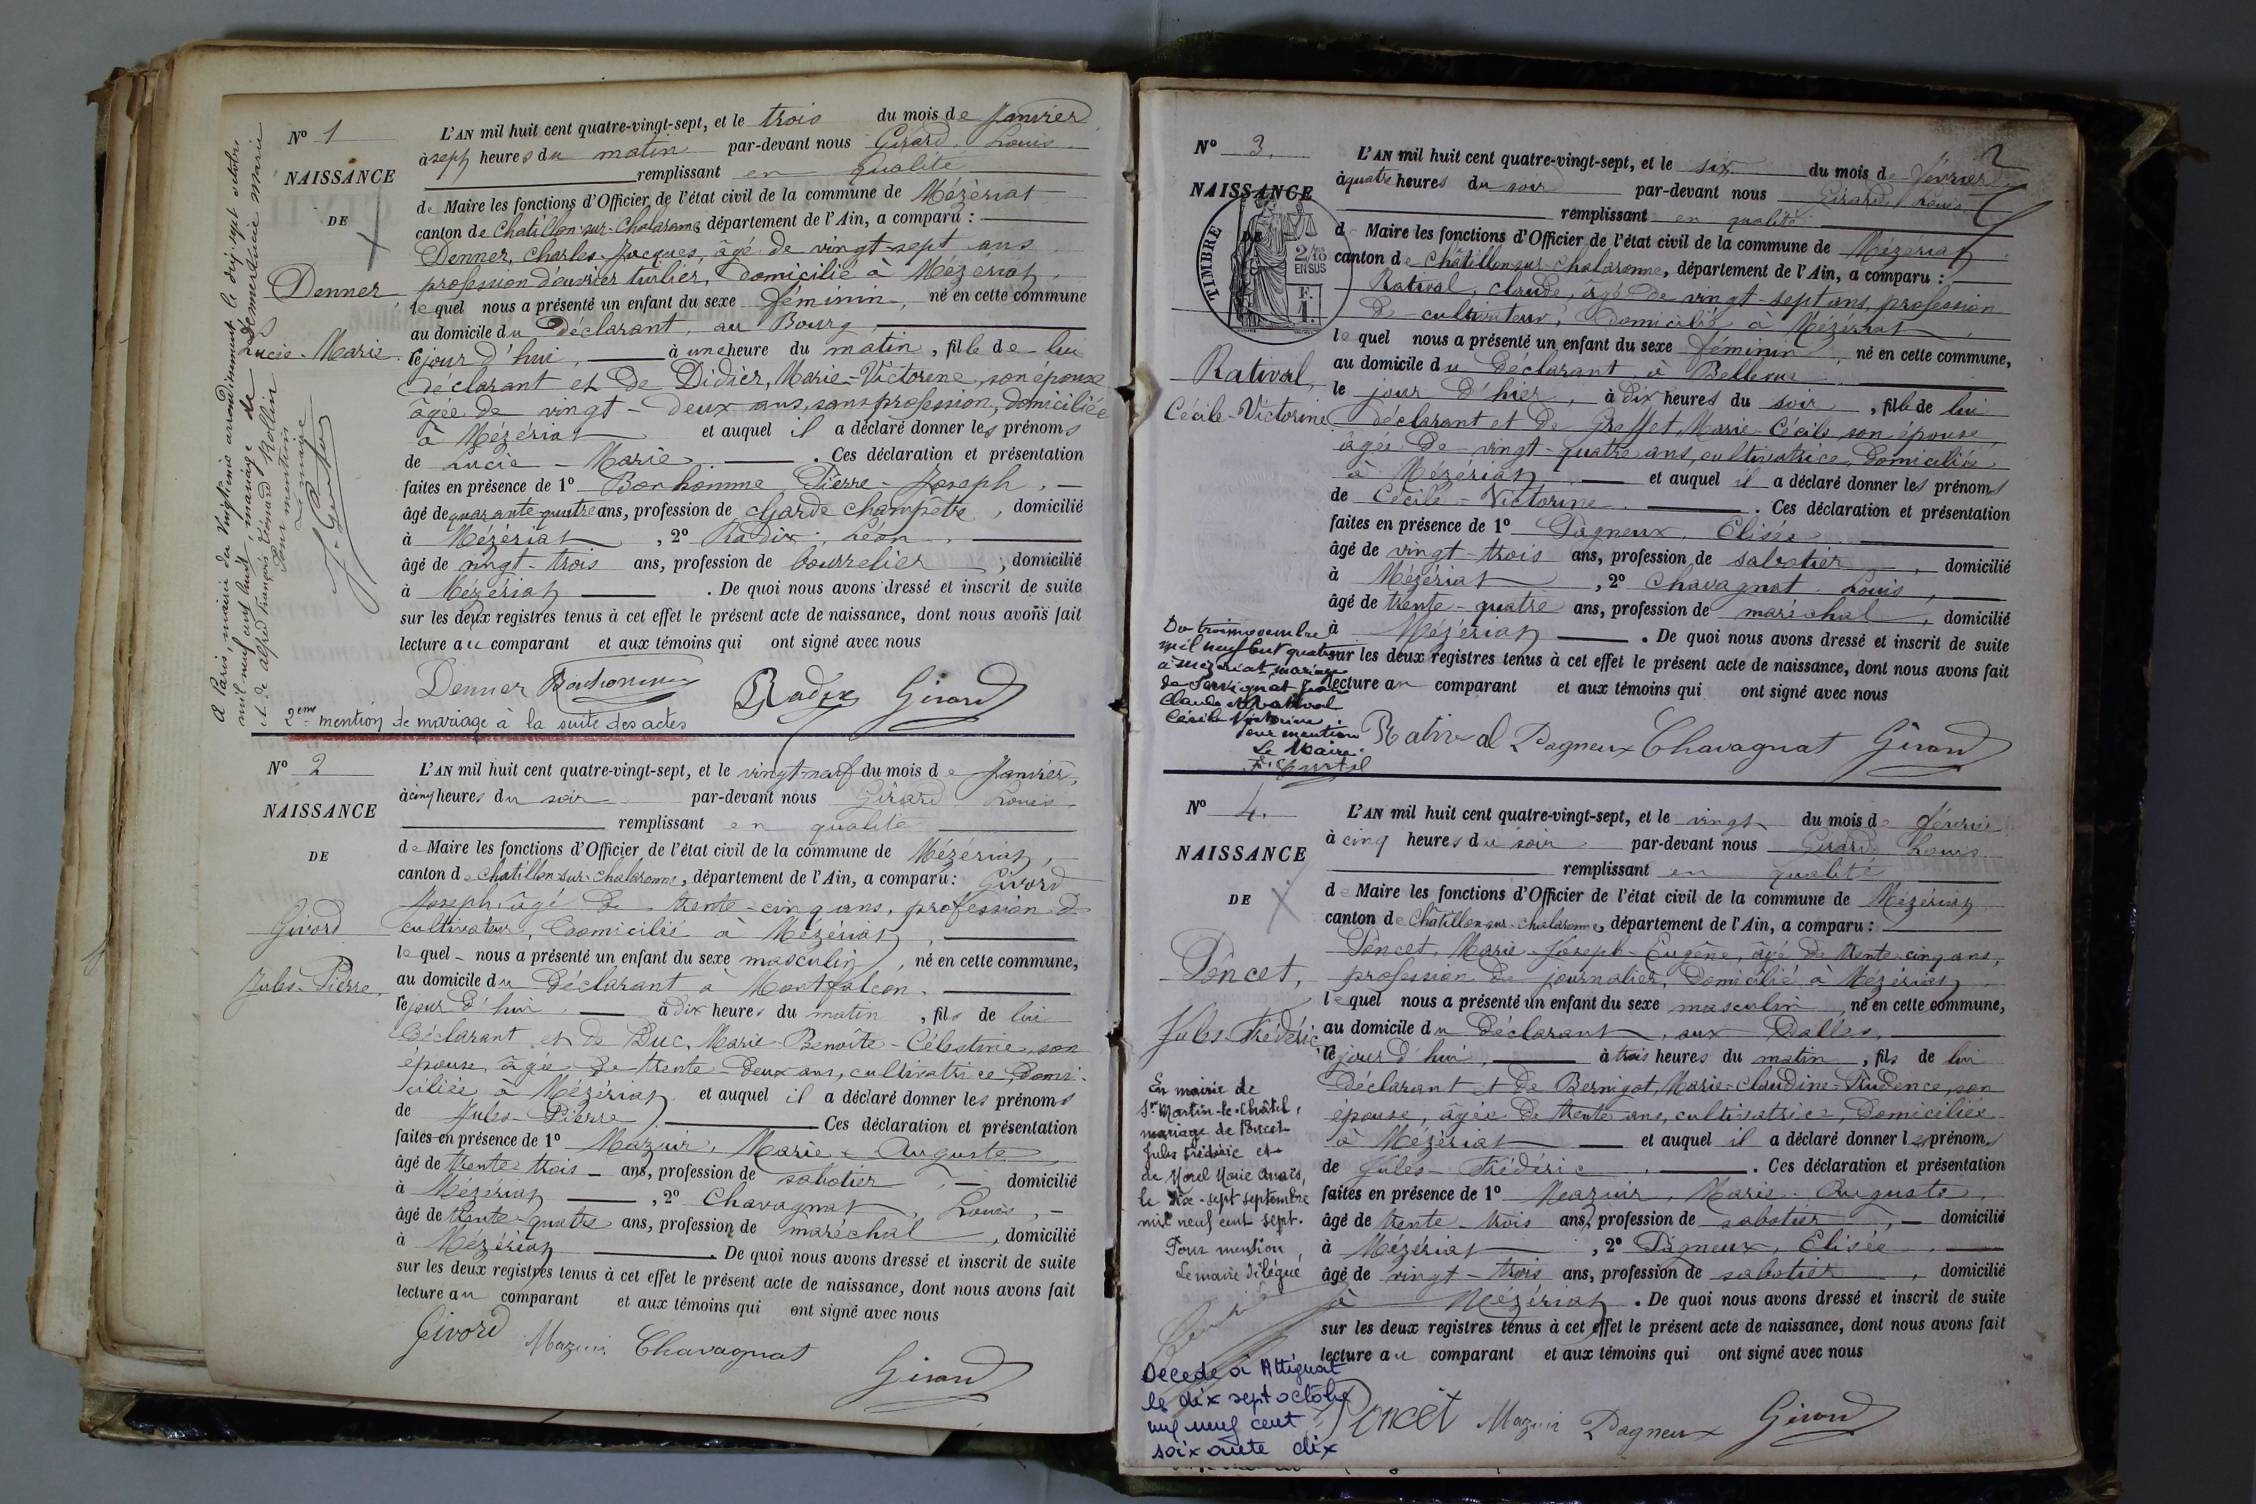 N° 1
NAISSANCE
DE
Denner
Lucie-Marie
A Paris, mairie du Vingtième arrondissement le dix-sept octobre
mil neuf cent huit, mariage de Denner Lucie Marie
et de Alfred François Léonard Rollin
Pour mention
Le maire
L'AN mil huit cent quatre-vingt-sept, et le trois du mois de Janvier
à sept heures du matin par-devant nous Girard, Louis
remplissant en qualité
de Maire les fonctions d'Officier de l'état civil de la commune de Mézériat
canton de Châtillon-sur-Chalaronne, département de l'Ain, a comparu :
Denner, Charles-Jacques, âgé de vingt-sept ans
profession d'ouvrier tuilier, domicilié à Mézériat,
lequel nous a présenté un enfant du sexe féminin, né en cette commune
au domicile du déclarant, au Bourg,
le jour d'hui, à une heure du matin, fille de lui
déclarant et de Didier, Marie-Victorine, son épouse
âgée de vingt-deux ans, sans profession, domiciliée
à Mézériat et auquel il a déclaré donner les prénoms
de Lucie-Marie. Ces déclaration et présentation
faites en présence de 1° Bonhomme, Pierre-Joseph,
âgé de quarante-quatre ans, profession de Garde champêtre, domicilié
à Mézériat, 2° Radix, Léon,
âgé de vingt-trois ans, profession de bourrelier, domicilié
à Mézériat. De quoi nous avons dressé et inscrit de suite
sur les deux registres tenus à cet effet le présent acte de naissance, dont nous avons fait
lecture au comparant et aux témoins qui ont signé avec nous
Denner Bonhomme Radix Girard
2ème mention de mariage à la suite des actes
N° 2
NAISSANCE
DE
Givord
Jules-Pierre,
L'AN mil huit cent quatre-vingt-sept, et le vingt-neuf du mois de Janvier,
à cinq heures du soir par-devant nous Girard Louis
remplissant en qualité
de Maire les fonctions d'Officier de l'état civil de la commune de Mézériat,
canton de Châtillon-sur-Chalaronne, département de l'Ain, a comparu : Givord
Joseph, âgé de trente-cinq ans, profession de
cultivateur, domicilié à Mézériat,
lequel nous a présenté un enfant du sexe masculin, né en cette commune,
au domicile du déclarant à Montfalcon.
le jour d'hui, à dix heures du matin, fils de lui
déclarant et de Duc, Marie-Benoîte-Célestine, son
épouse, âgée de trente-deux ans, cultivatrice, domi-
ciliée à Mézériat et auquel il a déclaré donner les prénoms
de Jules-Pierre, Ces déclaration et présentation
faites en présence de 1° Mazuir, Marie-Auguste
âgé de trente-trois ans, profession de sabotier, domicilié
à Mézériat, 2° Chavagnat, Louis,
âgé de trente-quatre ans, profession de maréchal, domicilié
à Mézériat. De quoi nous avons dressé et inscrit de suite
sur les deux registres tenus à cet effet le présent acte de naissance, dont nous avons fait
lecture au comparant et aux témoins qui ont signé avec nous
Givord Mazuir Chavagnat
Girard
2
N° 3.
NAISSANCE
DE
TIMBRE
2/10
EN SUS
F.
1.
Rativol,
Cécile-Victorine
L'AN mil huit cent quatre-vingt-sept, et le six du mois de février
à quatre heures du soir par-devant nous Girard, Louis,
remplissant en qualité
de Maire les fonctions d'Officier de l'état civil de la commune de Mézériat
canton de Châtillon-sur-Chalaronne, département de l'Ain, a comparu :
Rativol, Claude, âgé de vingt-sept ans, profession
de cultivateur, domicilié à Mézériat
lequel nous a présenté un enfant du sexe féminin, né en cette commune,
au domicile du déclarant à Bellevue
le jour d'hier, à dix heures du soir, fille de lui
déclarant et de Greffet, Marie-Cécile, son épouse,
âgée de vingt-quatre ans, cultivatrice, domiciliée
à Mézériat, et auquel il a déclaré donner les prénoms
de Cécile-Victorine. Ces déclaration et présentation
faites en présence de 1° Pagneux, Elisée
âgé de vingt-trois ans, profession de sabotier, domicilié
à Mézériat, 2° Chavagnat, Louis,
âgé de trente-quatre ans, profession de maréchal, domicilié
à Mézériat. De quoi nous avons dressé et inscrit de suite
sur les deux registres tenus à cet effet le présent acte de naissance, dont nous avons fait
lecture au comparant et aux témoins qui ont signé avec nous
Rativol Pagneux Chavagnat Girard
Du trois novembre
mil neuf cent quatre
à Mézériat, mariage
de
Claude et Rativol
Cécile Victorine.
Pour mention
Le Maire.
N° 4.
NAISSANCE
DE
Poncet,
Jules-Frédéric,
L'AN mil huit cent quatre-vingt-sept, et le vingt du mois de février
à cinq heures du soir par-devant nous Girard, Louis
remplissant en qualité
de Maire les fonctions d'Officier de l'état civil de la commune de Mézériat
canton de Châtillon-sur-Chalaronne, département de l'Ain, a comparu :
Poncet, Marie-Joseph-Eugène, âgé de trente-cinq ans,
profession de journalier, domicilié à Mézériat,
lequel nous a présenté un enfant du sexe masculin, né en cette commune,
au domicile du déclarant, aux Dalles,
le jour d'hui, à trois heures du matin, fils de lui
déclarant et de Bernigot, Marie-Claudine-Prudence, son
épouse, âgée de trente ans, cultivatrice, domiciliée
à Mézériat et auquel il a déclaré donner les prénoms
de Jules-Frédéric. Ces déclaration et présentation
faites en présence de 1° Mazuir, Marie-Auguste,
âgé de trente-trois ans, profession de sabotier, domicilié
à Mézériat, 2° Pagneux, Elisée,
âgé de vingt-trois ans, profession de sabotier, domicilié
à Mézériat. De quoi nous avons dressé et inscrit de suite
sur les deux registres tenus à cet effet le présent acte de naissance, dont nous avons fait
lecture au comparant et aux témoins qui ont signé avec nous
Poncet Mazuir Pagneux Girard
En mairie de
St Martin-le-Châtel,
mariage de Poncet
Jules Frédéric et
de Morel Marie Anaïs,
le dix-sept septembre
mil neuf cent sept.
Pour mention,
Le maire délégué
Décédé à Attignat
le dix sept octobre
mil neuf cent
soixante dix